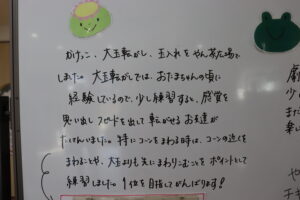 むけっこ、大玉転がし、玉入れを やん茶広場で
しました。大玉転がしでは、おたまちゃんの頃に
経験しているので、少し練習すると、感覚を
思い出し スピードを出して 転がせる お友達が
たくさんいました。特に コーンをまわる時は、コーンの近くを
まわることや、大玉よりも 先に まわりこむことを ポイントとして
練習しました。1位を目指してがんばります!